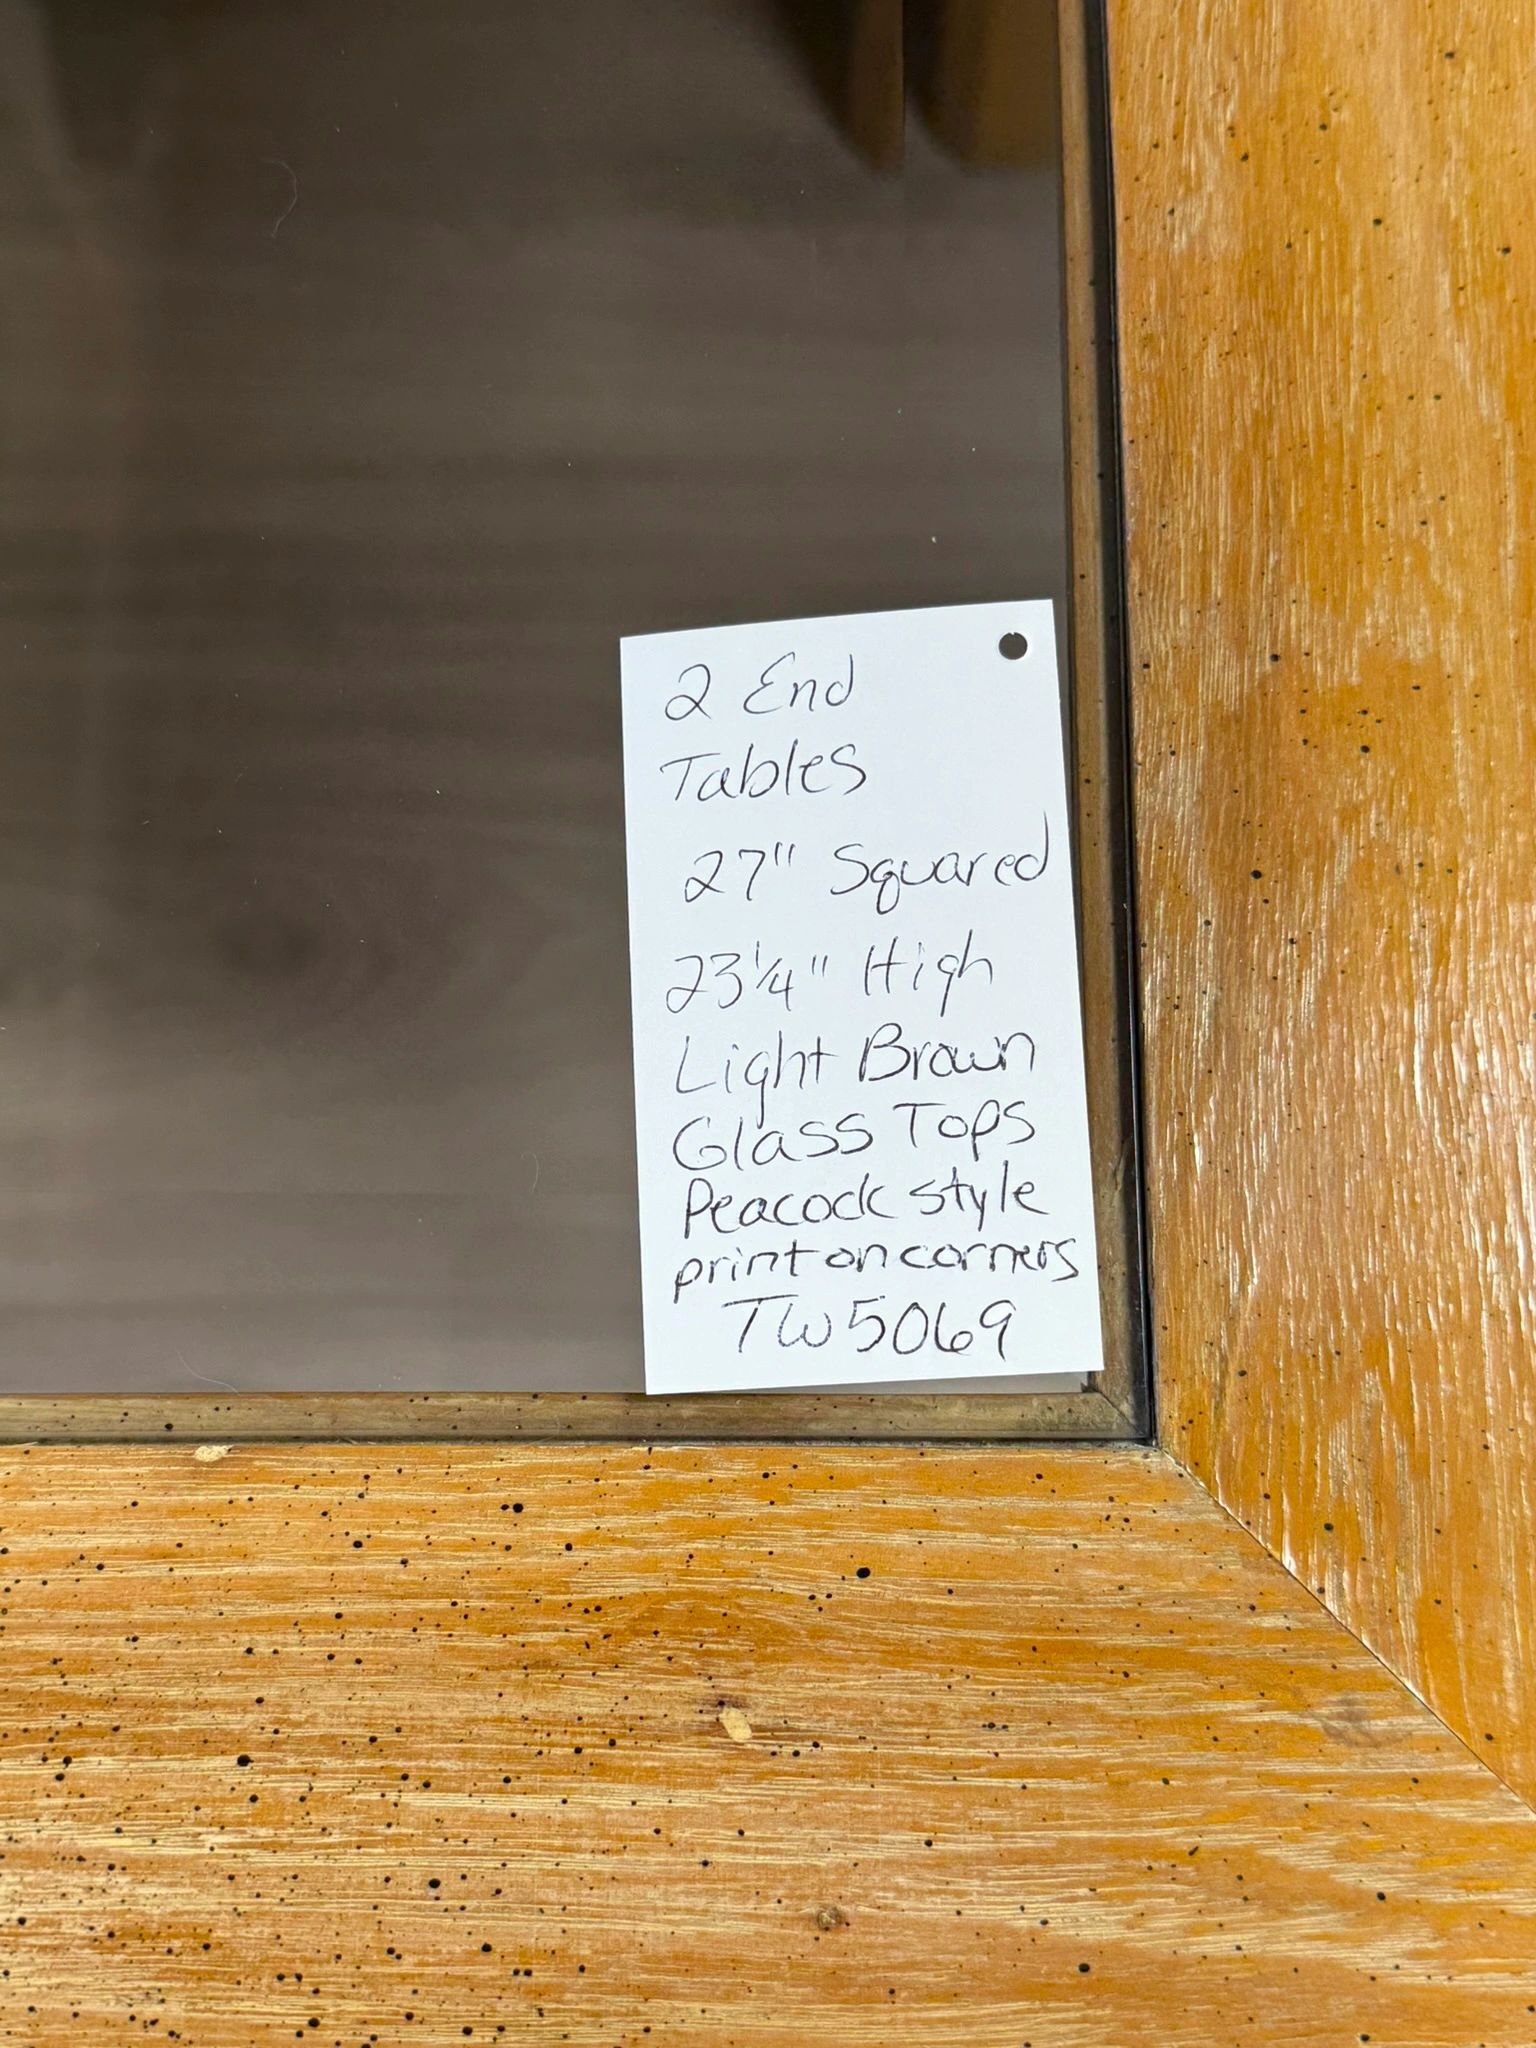 2 End
Tables
27" Squared
23 1/4" High
Light Brown
Glass Tops
Peacock style
print on corners
TW5069